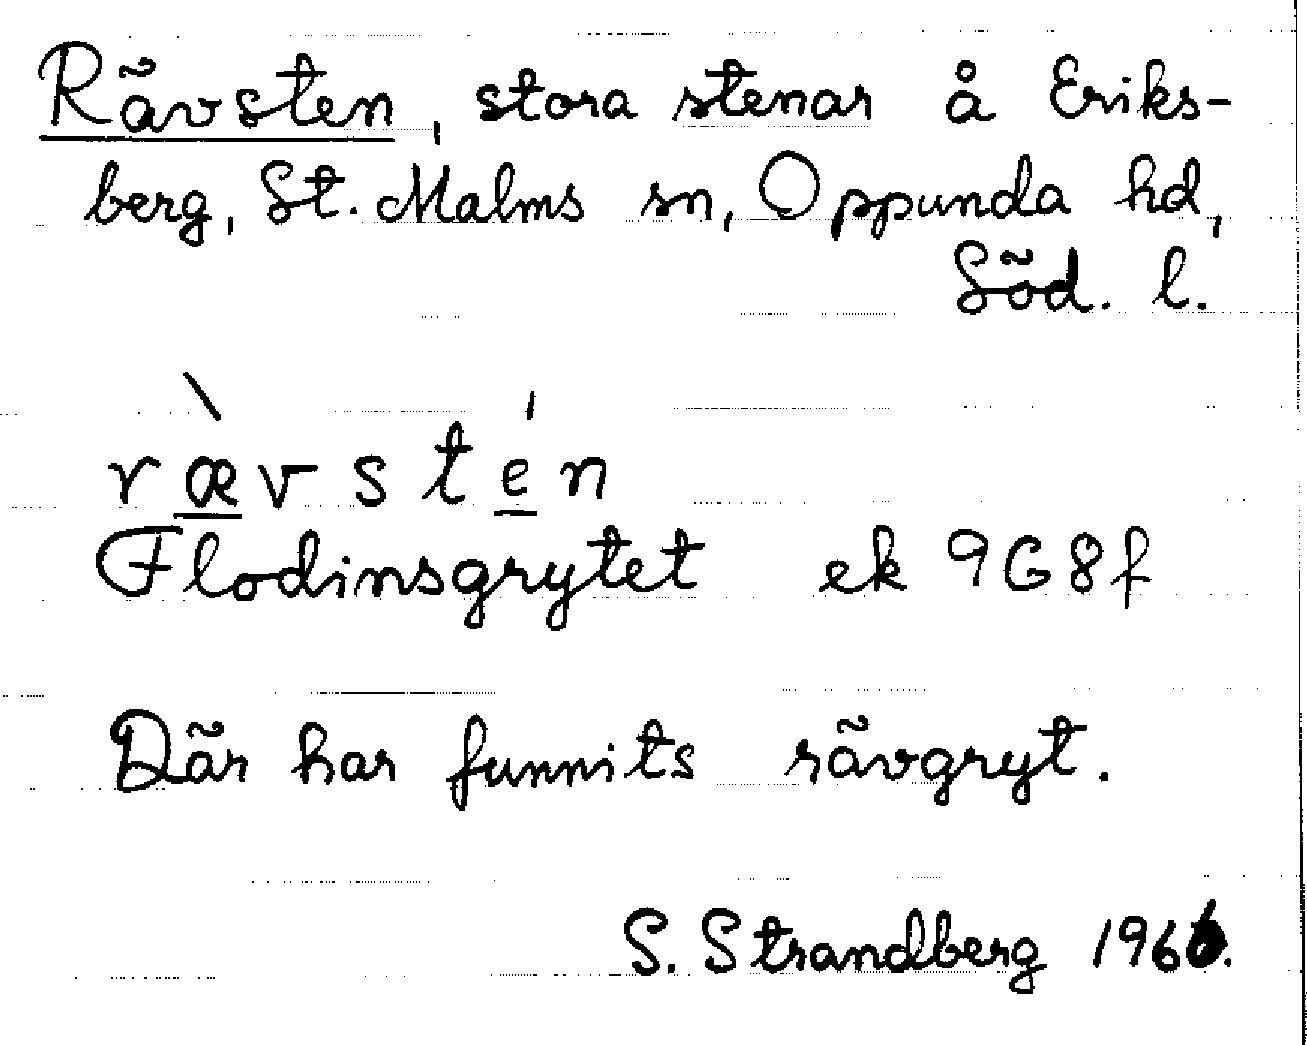 Rävsten, stora stenar å Eriks-
berg, St. Malms sn, Oppunda hd,
Söd. l.
r æ̀ v s t é n
Flodinsgrytet ek 9G8f
Där har funnits rävgryt.
S. Strandberg 1966.